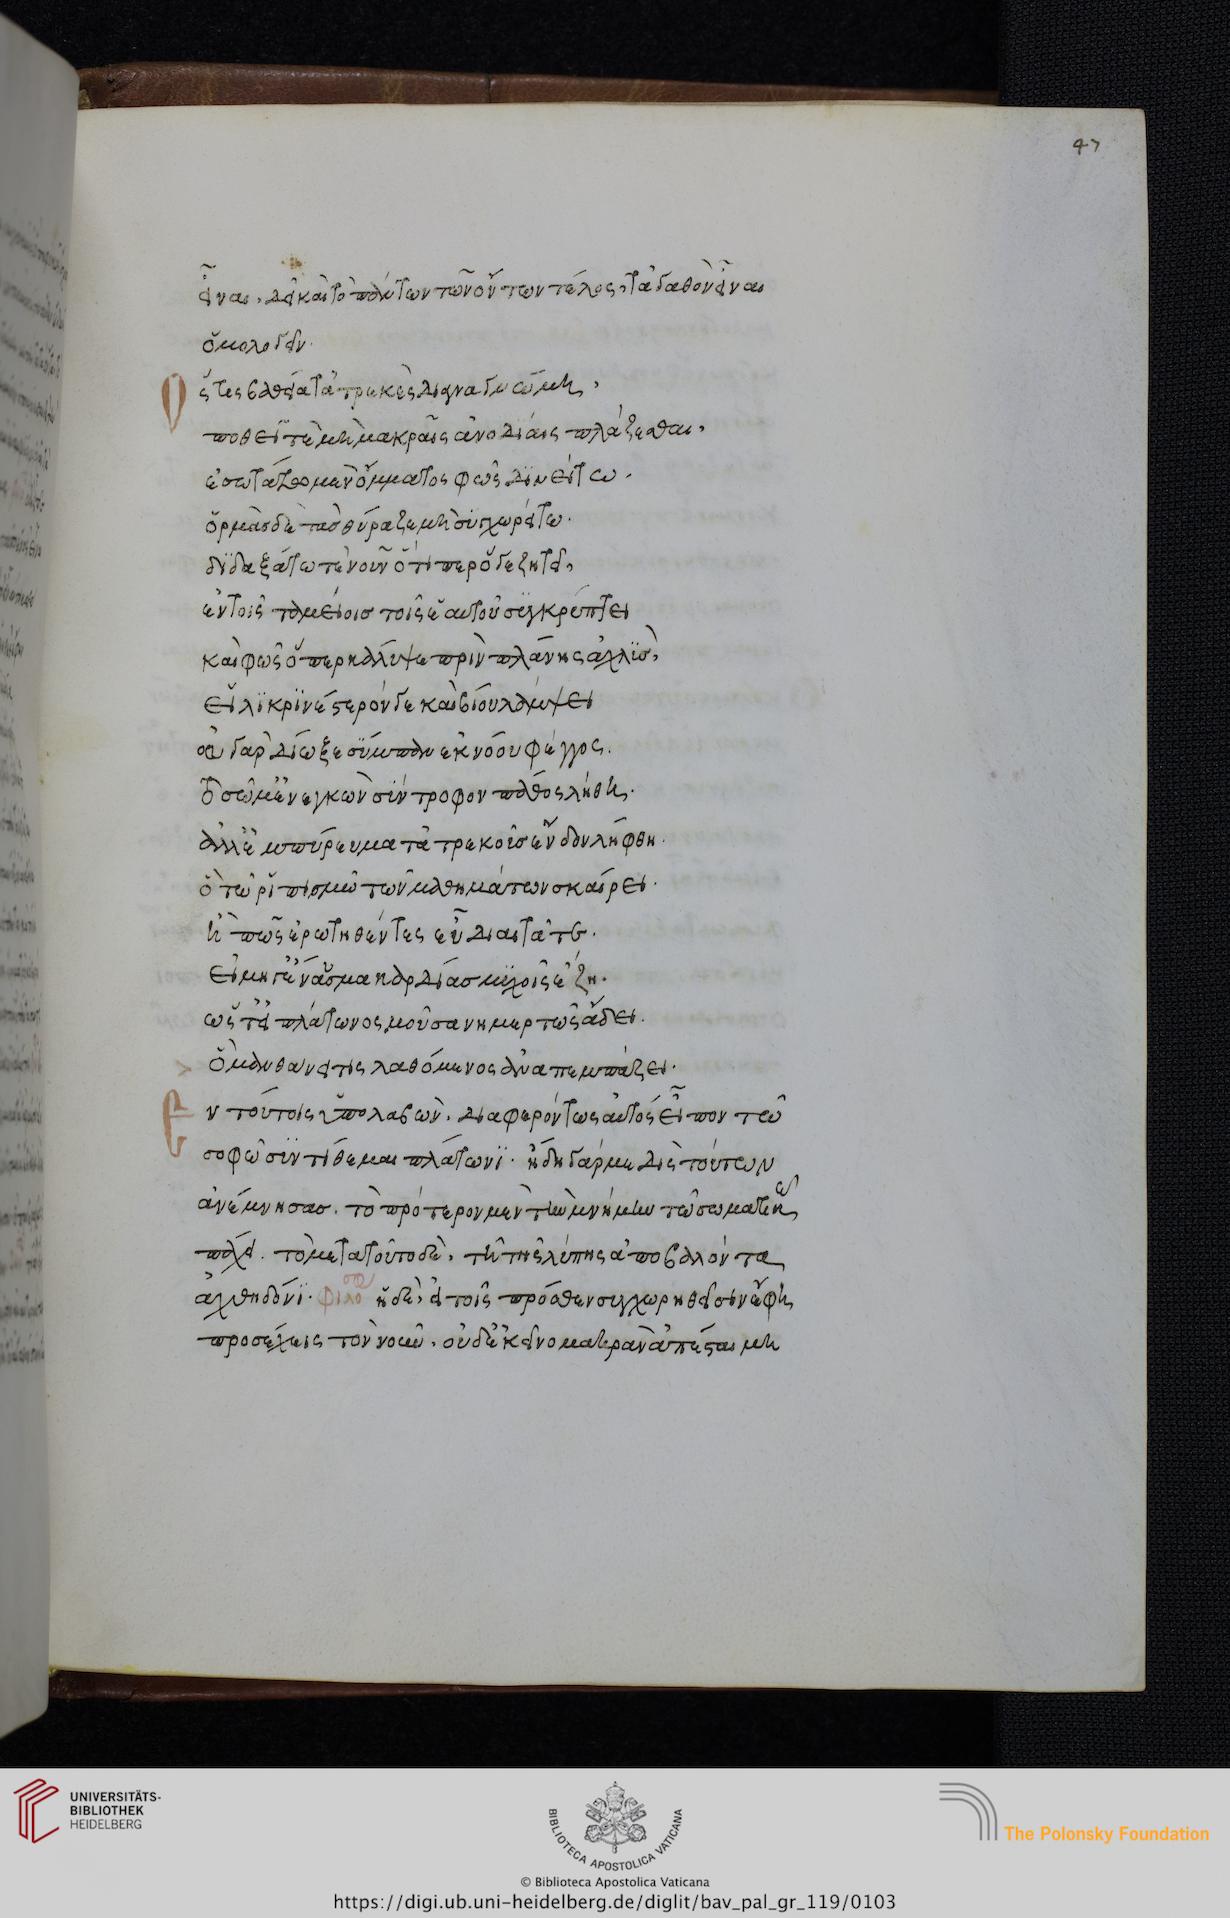 47
εἶναι, δεῖ καὶ τὸ πάντων τῶν ὄντων τέλος, τἀγαθὸν εἶναι
ὁμολογεῖν.
Ὅστις βαθεία τἀτρεκὲς διχνα γνώμη,
ποθεῖ τε μὴ μακραῖς ἀνοδίαις πλάζεσθαι,
ἐσωτάτω μὲν ὄμματος φῶς δινείτω.
ὁρμὰς δὲ τὰς θύραζε μὴ συγχωρείτω.
διδαξάτω τε νοῦν ὅτι περ ὅ γε ζητεῖ,
ἐν τοῖς ταμείοις τοῖς ἑαυτοῦ συγκρύπτει
καὶ φῶς ὅπερ κάλυψε πρὶν πλάνης ἀχλὺς,
εἱλικρινέστερόν γε καὶ βίου λάμψει
οὐ γὰρ δίωξε σύμπαν ἐκ νόου φέγγος.
τὸ σῶμ' ἐνεγκὼν σύντροφον πάθος λήθης.
ἀλλ' ἐμπύρευμα τἀτρεκοῦς ἔνδον λήφθη.
ὃ τῶ ῥιπισμῶ τῶν μαθημάτων σκαίρει.
ἢ πῶς ἐρωτηθέντες εὖ διαιτᾶτε.
εἰ μή γ' ἔναυσμα καρδίας μυχοῖς ἔζη.
ὡς τι πλάτωνος μοῦσα νημερτῶς ἄδει.
ὃ μανθάνει τις λαθόμενος ἀναπεμπάζει.
Ἐν τούτοις ὑπολαβὼν, διαφερόντως αὐτὸς εἶπον τῶ
σοφῶ συντίθεμαι πλάτωνι. ἤδη γάρ με δὶς τούτων
ἀνέμνησας. τὸ πρότερον μὲν τὴν μνήμην τῶ σωματικῶ
πάχει. τὸ μετὰ τοῦτο δὲ, τῆ τῆς λύπης ἀποβαλόντα
ἀχθηδόνι. φιλοσο ἡ δὲ, εἰ τοῖς πρόσθεν συγχωρηθεῖσιν ἔφη
προσέχεις τὸν νοῦν, οὐδ' ἐκεῖνο μακρὰν ἀπέσται μὴ
UNIVERSITÄTS-
BIBLIOTHEK
HEIDELBERG
BIBLIOTECA APOSTOLICA VATICANA
The Polonsky Foundation
© Biblioteca Apostolica Vaticana
https://digi.ub.uni-heidelberg.de/diglit/bav_pal_gr_119/0103